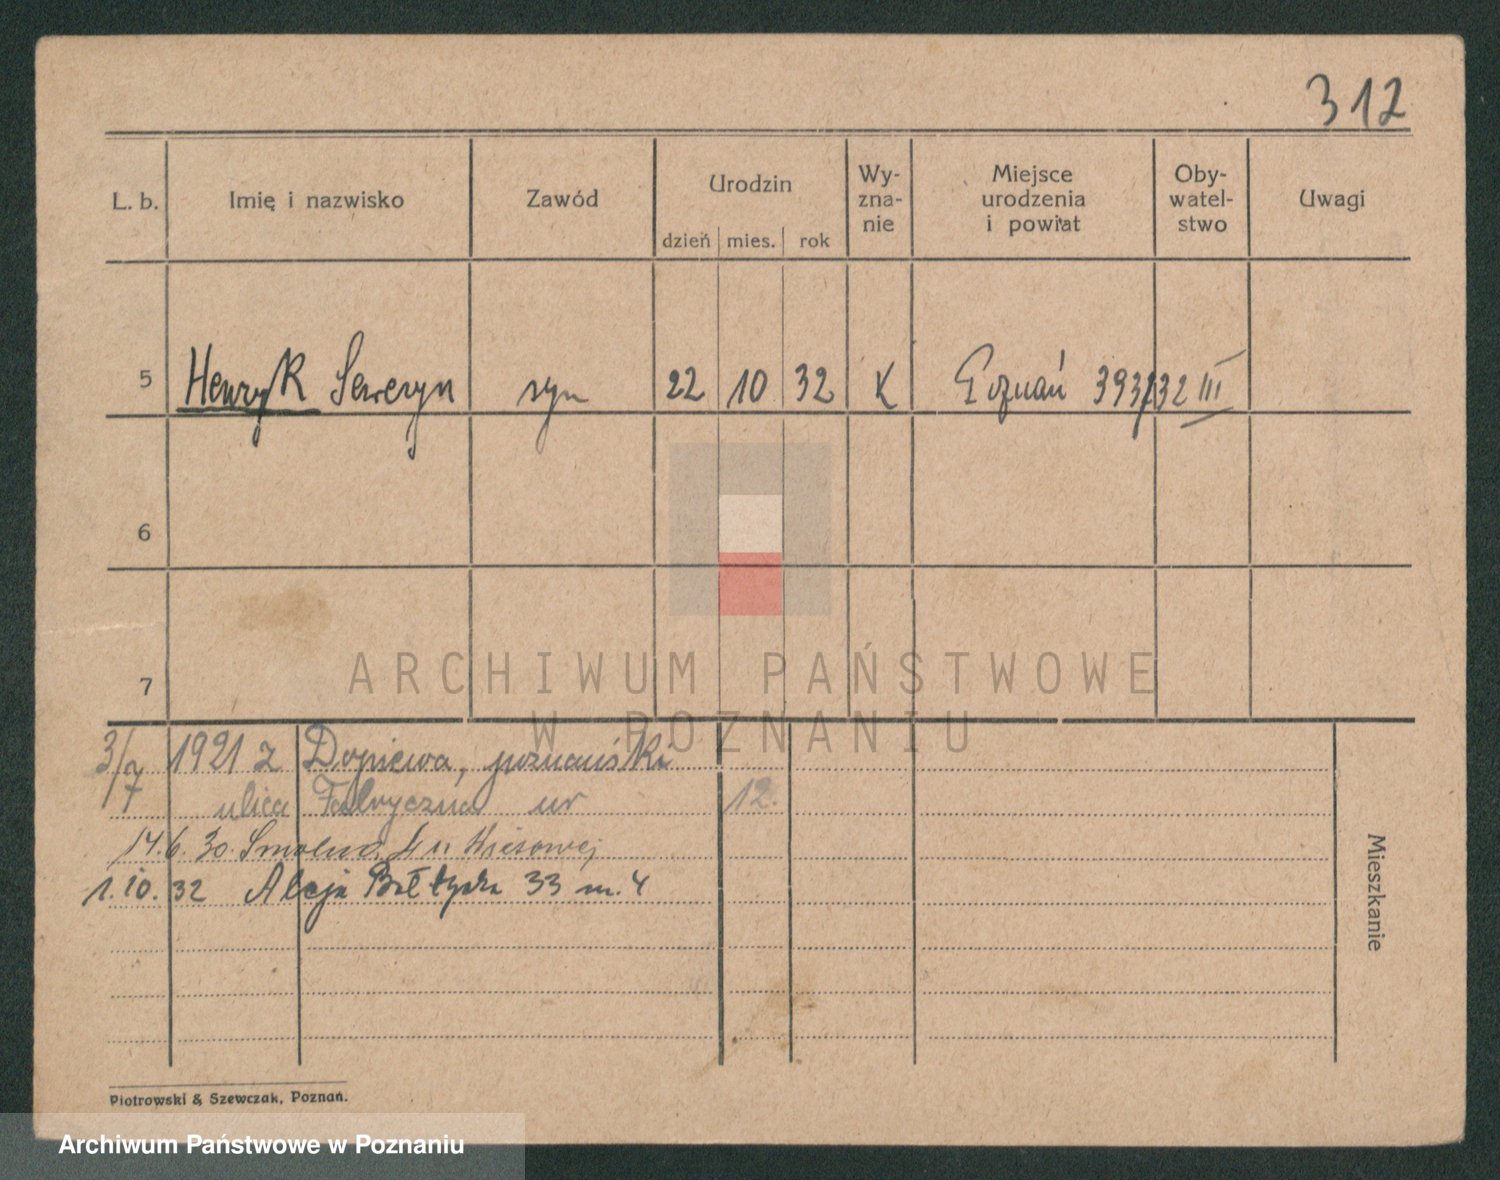 312
L. b. Imię i nazwisko Zawód Urodzin dzień mies. rok Wy-zna-nie Miejsce urodzenia i powiat Oby-watel-stwo Uwagi
5 Henryk Seweryn syn 22 10 32 K Poznań 393/32 III
6
7
ARCHIWUM PAŃSTWOWE
W POZNANIU
3/7 1921 z Dopiewa, poznański
ulica Fabryczna nr 12.
14.6.30. Smolna 4
1.10.32 Aleja Bałtycka 33 m. 4
Mieszkanie
Piotrowski & Szewczak, Poznań.
Archiwum Państwowe w Poznaniu